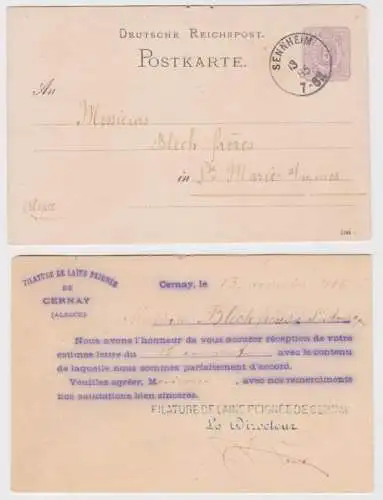 DEUTSCHE REICHSPOST.
POSTKARTE.
SENNHEIM
An
Messieurs
Blech frères
in Ste Marie a/mines
Alsace
FILATURE DE LAINE PEIGNÉE
DE
CERNAY
(ALSACE)
Cernay, le 13
Blech
Nous avons l'honneur de vous accuser réception de votre
estimée lettre du avec le contenu
de laquelle nous sommes parfaitement d'accord.
Veuillez agréer, M avec nos remerciments
nos salutations bien sincères.
FILATURE DE LAINE PEIGNÉE DE CERNAY
Le Directeur